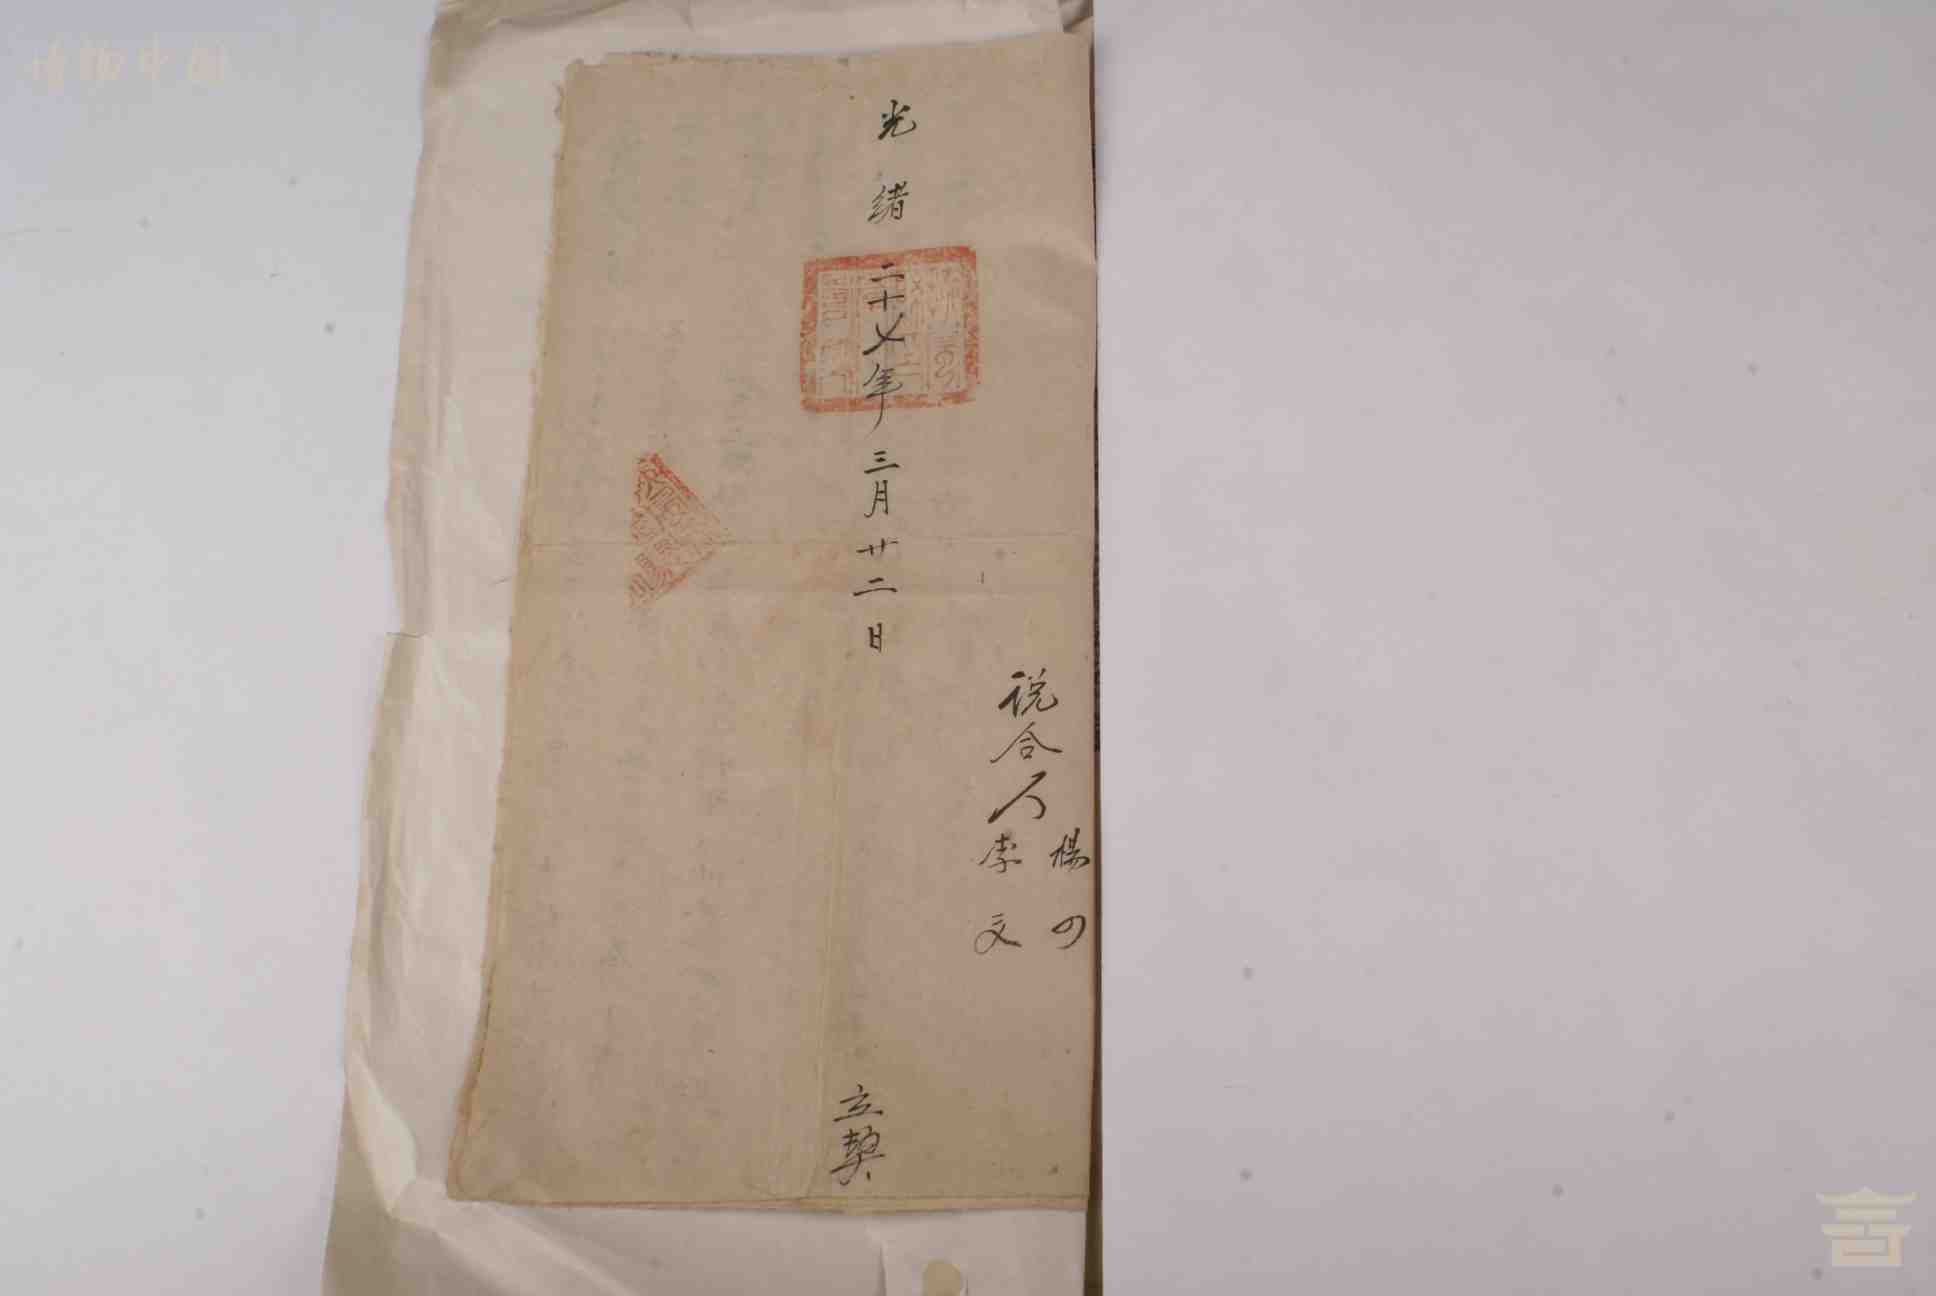 楊四
說合人
李文
光緒二十七年三月廿二日
立契
博物中国